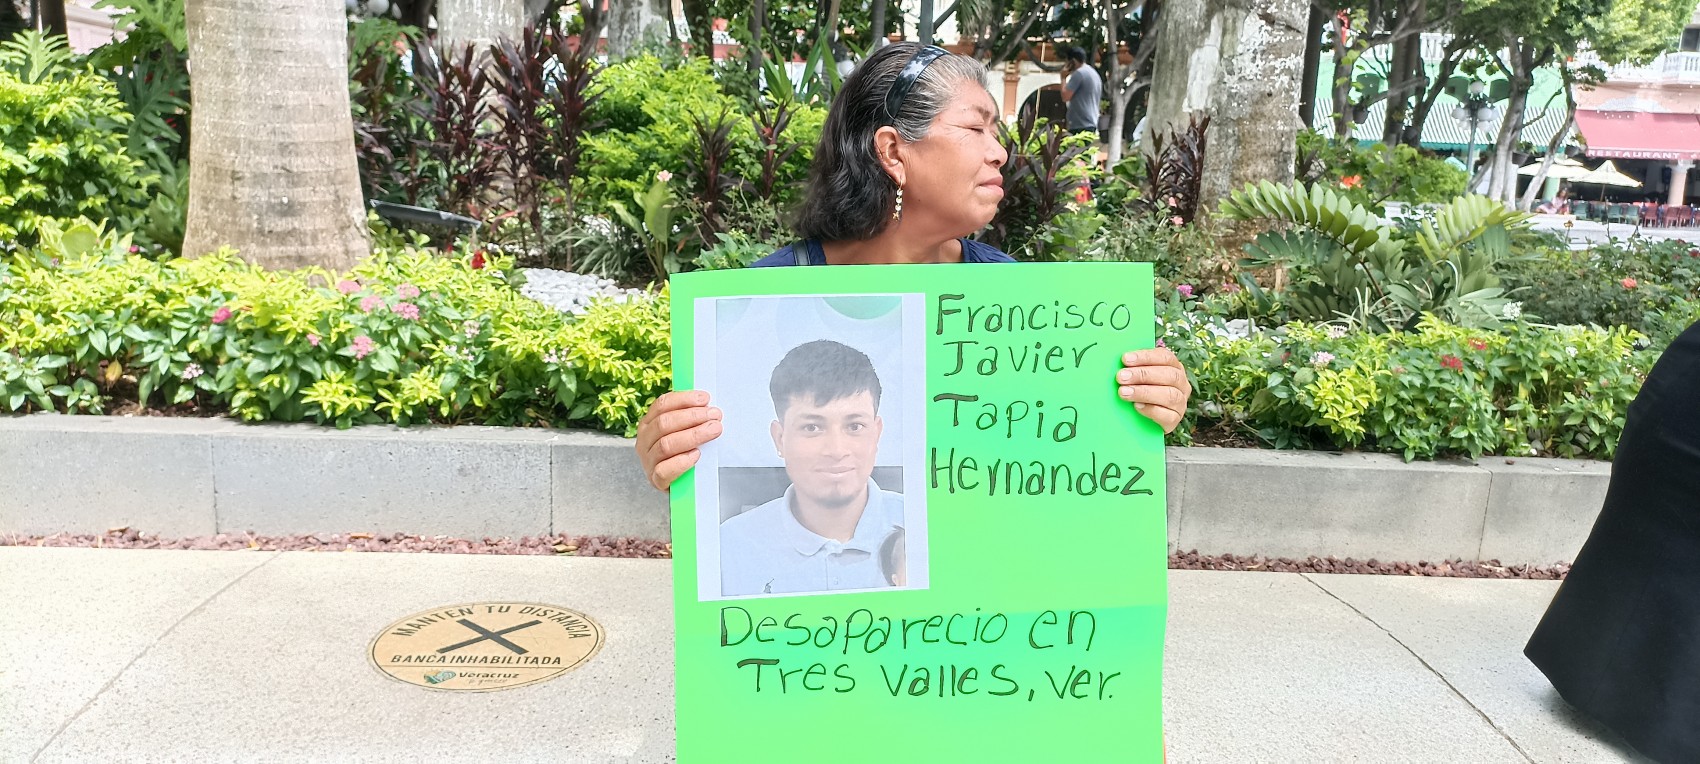 RESTAURANT
Francisco
Javier
Tapia
Hernandez
Desaparecio en
Tres valles, ver.
MANTEN TU DISTANCIA
BANCA INHABILITADA
Veracruz